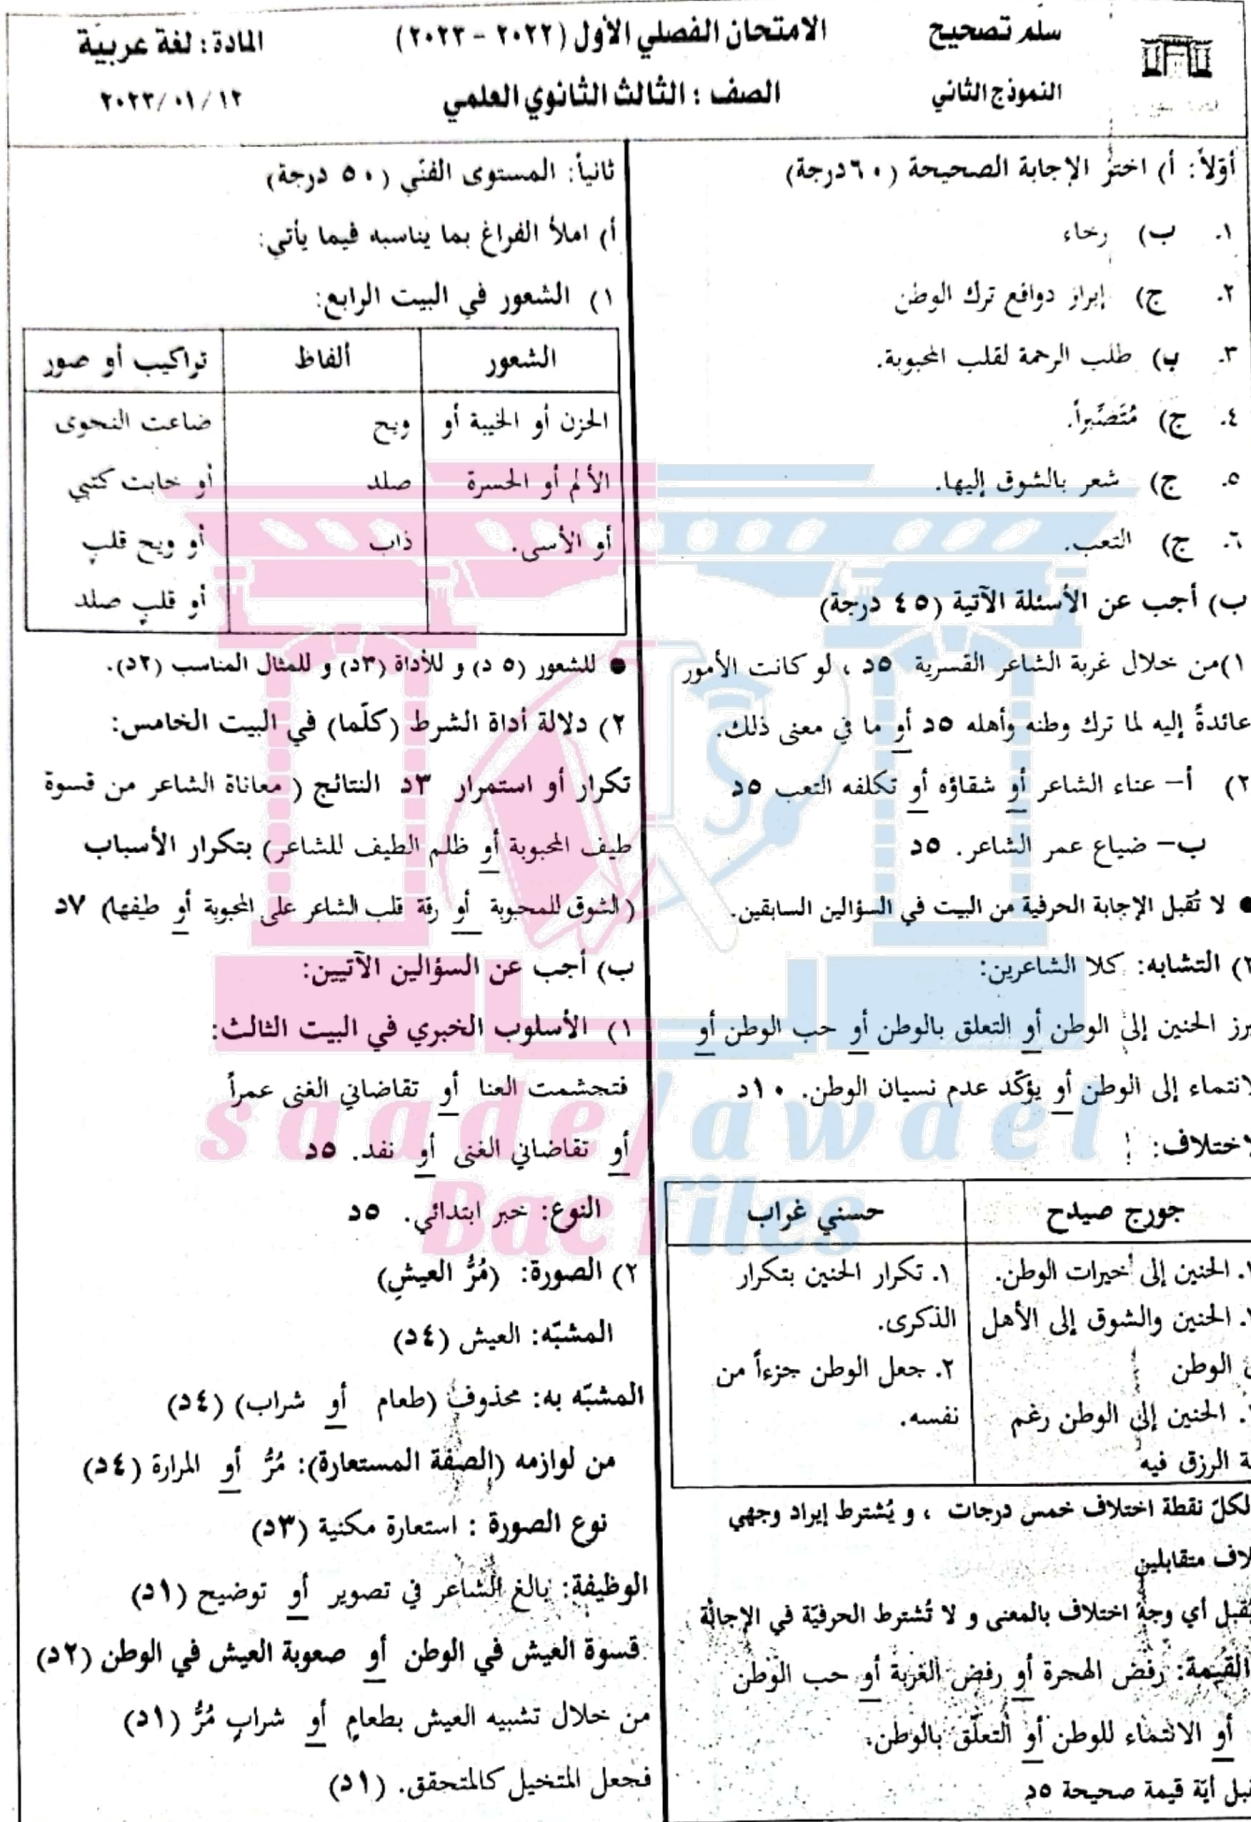 سلم تصحيح
النموذج الثاني
الامتحان الفصلي الأول (٢٠٢٢ - ٢٠٢٣)
الصف : الثالث الثانوي العلمي
المادة : لغة عربيّة
٢٠٢٣/٠١/١٢
أوّلاً: أ) اختر الإجابة الصحيحة (٦٠درجة)
١. ب) رخاء
٢. ج) إبراز دوافع ترك الوطن
٣. ب) طلب الرحمة لقلب المحبوبة.
٤. ج) مُتَصَّبراً.
٥. ج) شعر بالشوق إليها.
٦. ج) التعب.
ب) أجب عن الأسئلة الآتية (٤٥ درجة)
١)من خلال غربة الشاعر القسرية ٥د ، لو كانت الأمور
عائدةً إليه لما ترك وطنه وأهله ٥د أو ما في معنى ذلك.
٢) أ– عناء الشاعر أو شقاؤه أو تكلفه التعب ٥د
ب– ضياع عمر الشاعر. ٥د
● لا تُقبل الإجابة الحرفية من البيت في السؤالين السابقين.
) التشابه: كلا الشاعرين:
برز الحنين إلى الوطن أو التعلق بالوطن أو حب الوطن أو
لانتماء إلى الوطن أو يؤكّد عدم نسيان الوطن. ١٠د
لاختلاف:
جورج صيدح | حسني غراب
. الحنين إلى خيرات الوطن. | ١. تكرار الحنين بتكرار
. الحنين والشوق إلى الأهل | الذكرى.
الوطن | ٢. جعل الوطن جزءاً من
. الحنين إلى الوطن رغم | نفسه.
ة الرزق فيه
لكلّ نقطة اختلاف خمس درجات ، و يُشترط إيراد وجهي
لاف متقابلين
ُقبل أي وجه اختلاف بالمعنى و لا تُشترط الحرفيّة في الإجابة
القيمة: رفض الهجرة أو رفض الغربة أو حب الوطن
أو الانتماء للوطن أو التعلّق بالوطن.
قبل أيّة قيمة صحيحة ٥د
ثانياً: المستوى الفنّي (٥٠ درجة)
أ) املأ الفراغ بما يناسبه فيما يأتي:
١) الشعور في البيت الرابع:
الشعور | ألفاظ | تراكيب أو صور
الحزن أو الخيبة أو | ويح | ضاعت النجوى
الألم أو الحسرة | صلد | أو خابت كتبي
أو الأسى. | ذاب | أو ويح قلبٍ
أو قلبٍ صلد
● للشعور (٥ د) و للأداة (٣د) و للمثال المناسب (٢د).
٢) دلالة أداة الشرط (كلّما) في البيت الخامس:
تكرار أو استمرار ٣د النتائج ( معاناة الشاعر من قسوة
طيف المحبوبة أو ظلم الطيف للشاعر) بتكرار الأسباب
(الشوق للمحبوبة أو رقة قلب الشاعر على المحبوبة أو طيفها) ٧د
ب) أجب عن السؤالين الآتيين:
١) الأسلوب الخبري في البيت الثالث:
فتجشمت العنا أو تقاضاني الغنى عمراً
أو تقاضاني الغنى أو نفد. ٥د
النوع: خبر ابتدائي. ٥د
٢) الصورة: (مُرُّ العيشِ)
المشبّه: العيش (٤د)
المشبّه به: محذوف (طعام أو شراب) (٤د)
من لوازمه (الصفة المستعارة): مُرُّ أو المرارة (٤د)
نوع الصورة : استعارة مكنية (٣د)
الوظيفة: بالغ الشاعر في تصوير أو توضيح (١د)
قسوة العيش في الوطن أو صعوبة العيش في الوطن (٢د)
من خلال تشبيه العيش بطعامٍ أو شرابٍ مُرُّ (١د)
فجعل المتخيل كالمتحقق. (١د)
saade/awael
Bac files